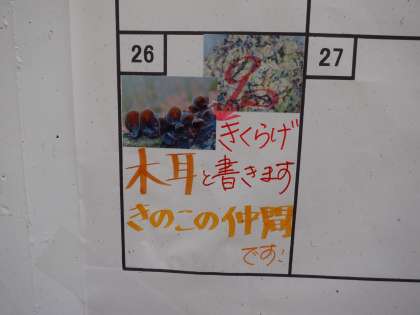 26
27
9
きくらげ
木耳と書きます
きのこの仲間
です!